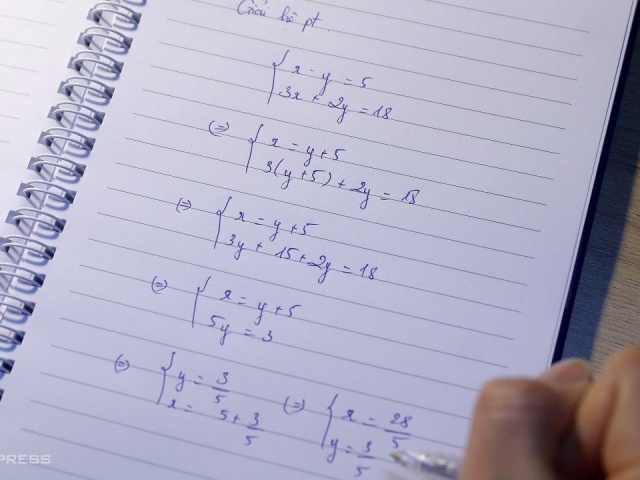 Giải hệ pt.
{ x - y = 5
3x + 2y = 18
(=) { x = y + 5
3(y+5) + 2y = 18
(=) { x = y + 5
3y + 15 + 2y = 18
(=) { x = y + 5
5y = 3
(=) { y = 3/5 (=) { x = 28/5
x = 5 + 3/5 y = 3/5
PRESS